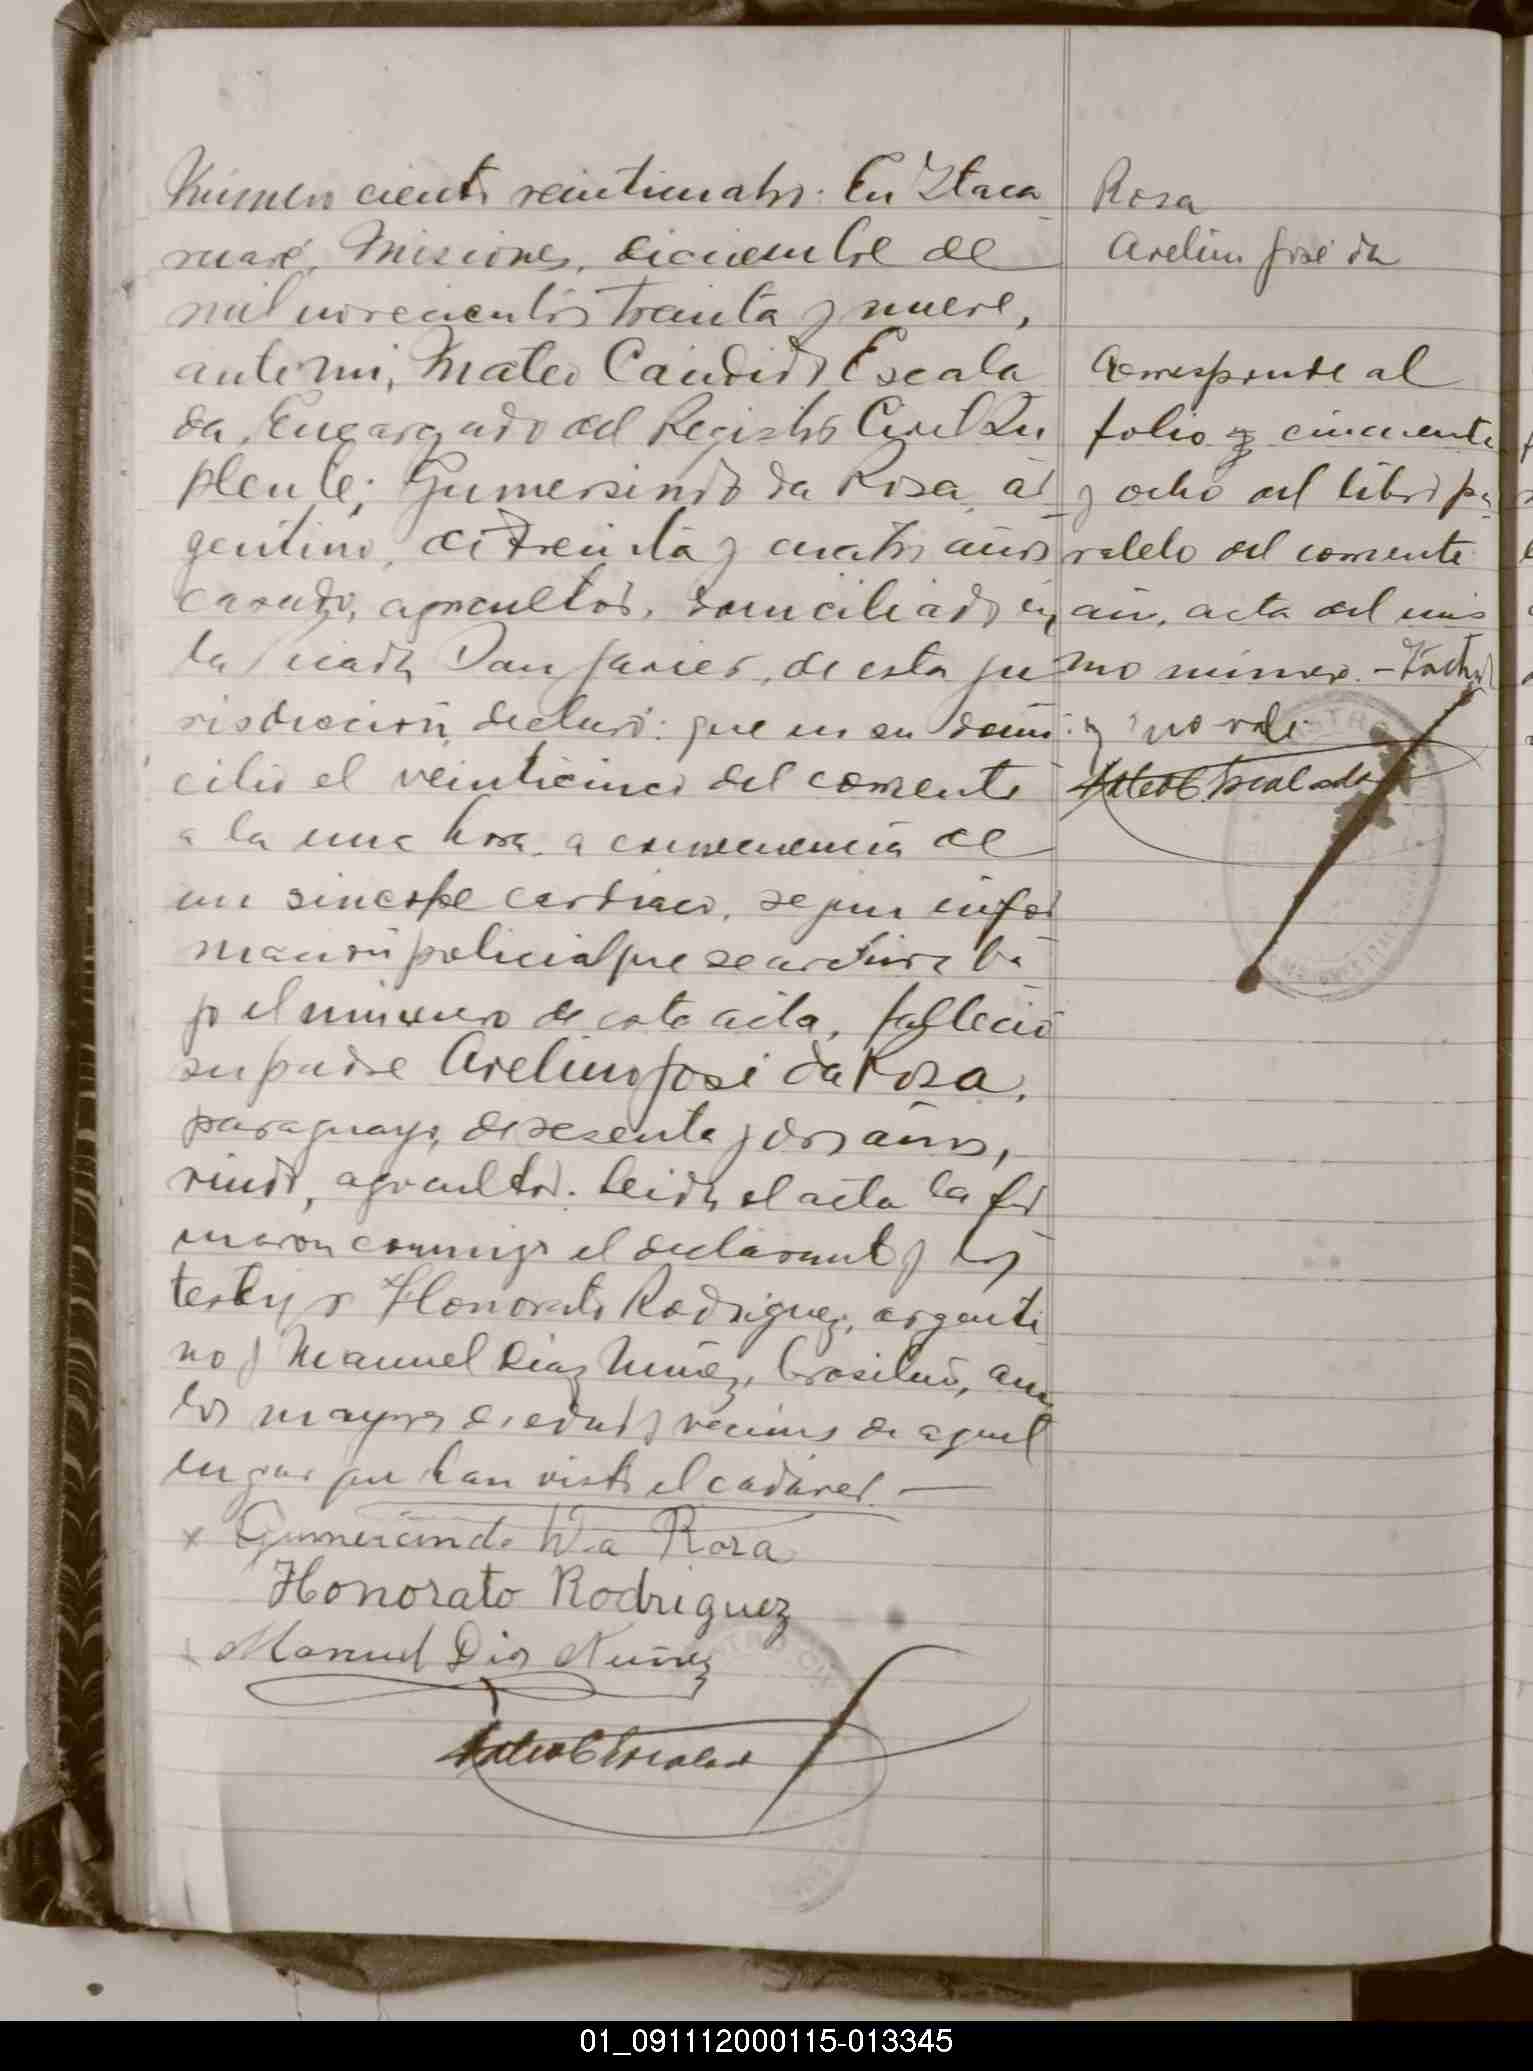 Número ciento veinticuatro: En Itaca
ruaré, Misiones, diciembre de
mil novecientos treinta y nueve,
ante mi, Mateo Candido Escala
da, Encargado del Registro Civil Su
plente; Gumersindo da Rosa, ar
gentino, de treinta y cuatro años
casado, agricultor, domiciliado en
la Picada San Javier, de esta ju
risdicción, declaró: que en su domi
cilio el veinticinco del corriente
a la una hora a consecuencia de
un sincope cardiaco, segun infor
mación policial que se archiva ba
jo el número de esta acta, falleció
su padre Avelino José da Rosa,
paraguayo, de sesenta y dos años,
viudo, agricultor. Leida el acta la fir
maron conmigo el declarante y los
testigos Honorato Rodriguez, argenti
no y Manuel Diaz Nuñez, brasileño, am
bos mayores de edad y vecinos de aquel
lugar que han visto el cadáver. —
x Gumercindo Da Rosa
Honorato Rodriguez
x Manuel Dias Nuñez
Mateo C Escalada
Rosa
Avelino José da
Corresponde al
folio y cincuenta
y ocho del libro pa
ralelo del corriente
año, acta del mis
mo número. - Testado
: y : no vale
Mateo C. Escalada
01_091112000115-013345